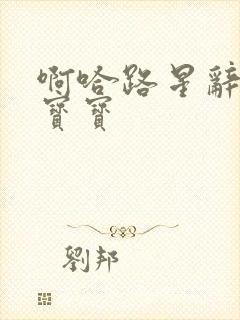 啊哈路星辭
寶寶
劉邦